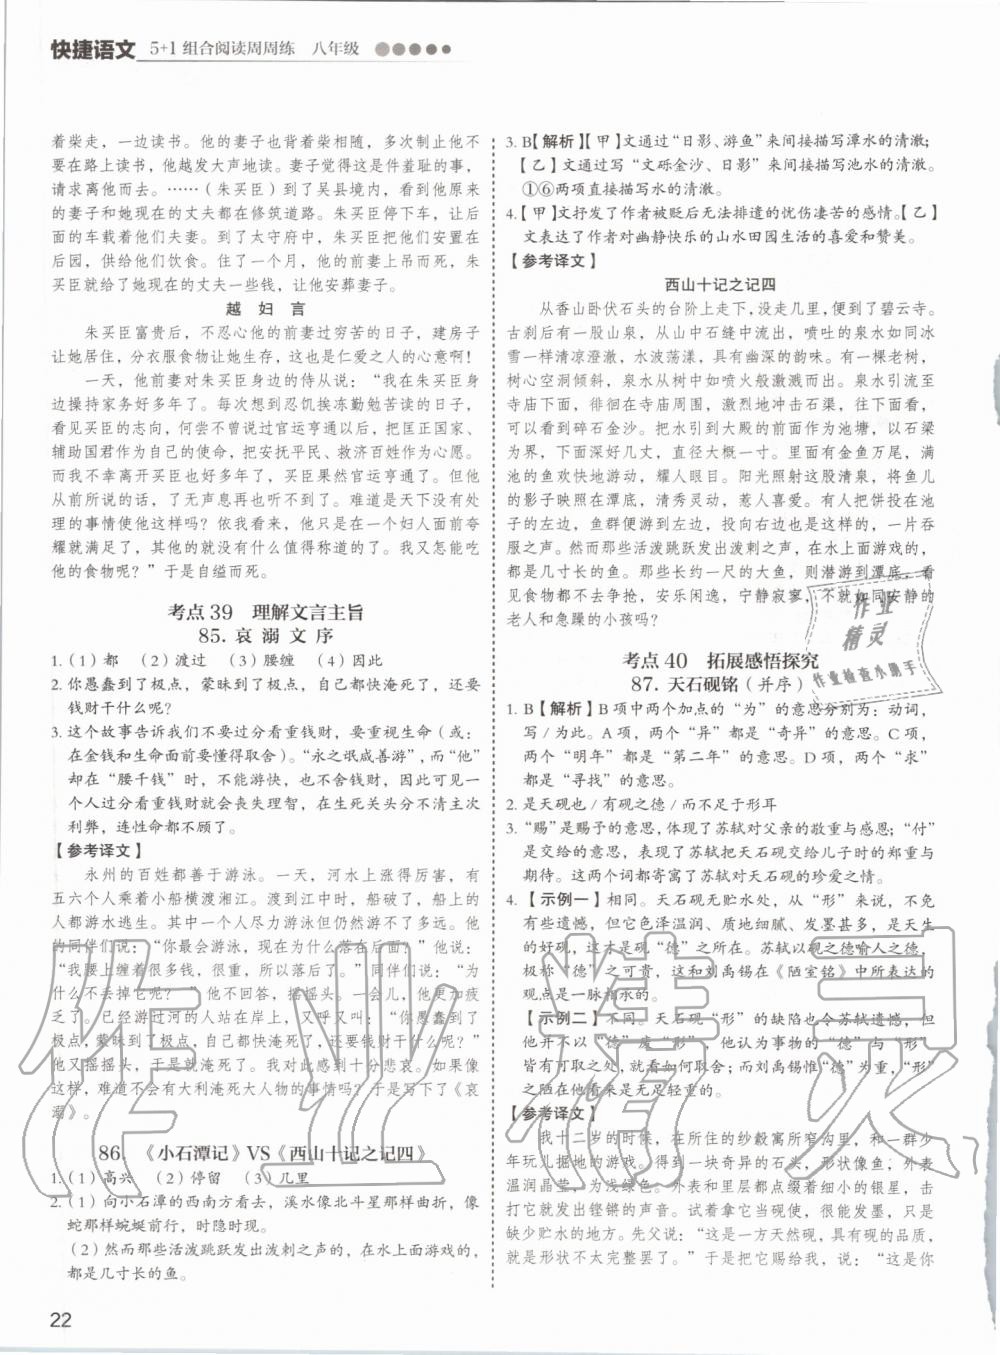 快捷语文 5+1 组合阅读周周练 八年级
着柴走，一边读书。他的妻子也背着柴相随，多次制止他不
要在路上读书，他越发大声地读。妻子觉得这是件羞耻的事，
请求离他而去。……（朱买臣）到了吴县境内，看到他原来
的妻子和她现在的丈夫都在修筑道路。朱买臣停下车，让后
面的车载他们夫妻。到了太守府中，朱买臣把他们安置在
后园，供给他们饮食。住了一个月，他的前妻上吊而死，朱
买臣就给了她现在的丈夫一些钱，让他安葬妻子。
越 妇 言
朱买臣富贵后，不忍心他的前妻过穷苦的日子，建房子
让她居住，分衣服食物让她生存，这也是仁爱之人的心意啊！
一天，他前妻对朱买臣身边的侍从说：“我在朱买臣身
边操持家务好多年了。每次想到忍饥挨冻勤勉苦读的日子，
看见买臣的志向，何尝不曾说过官运亨通以后，把匡正国家、
辅助国君作为自己的使命，把安抚平民、救济百姓作为心愿。
而我不幸离开买臣也好多年了，买臣果然官运亨通了。但他
从前所说的话，了无声息再也听不到了。难道是天下没有处
理的事情使他这样吗？依我看来，他只是在一个妇人面前夸
耀就满足了，其他的就没有什么值得称道的了。我又怎能吃
他的食物呢？”于是自缢而死。
考点 39 理解文言主旨
85. 哀 溺 文 序
1.（1）都 （2）渡过 （3）腰缠 （4）因此
2. 你愚蠢到了极点，蒙昧到了极点，自己都快淹死了，还要
钱财干什么呢？
3. 这个故事告诉我们不要过分看重钱财，要重视生命（或：
在金钱和生命面前要懂得取舍）。“永之氓咸善游”，而“他”
却在“腰千钱”时，不能游快，也不舍钱财，因此可见一
个人过分看重钱财就会丧失理智，在生死关头分不清主次
利弊，连性命都不顾了。
【参考译文】
永州的百姓都善于游泳。一天，河水上涨得厉害，有
五六个人乘着小船横渡湘江。渡到江中时，船破了，船上的人
都游水逃生。其中一个人尽力游泳但仍然游不了多远。他
的同伴们说：“你最会游泳，现在为什么落在后面？”他说：
“我腰上缠着很多钱，很重，所以落后了。”同伴们说：“为
什么不丢掉它呢？”他不回答，摇摇头。一会儿，他更加疲
乏了。已经游过河的人站在岸上，又呼又叫：“你愚蠢到了
极点，蒙昧到了极点，自己都快淹死了，还要钱财干什么呢？”他
又摇摇头，于是就淹死了。我对此感到十分悲哀。如果像
这样，难道不会有大利淹死大人物的事情吗？于是写下了《哀
溺》。
86. 《小石潭记》VS《西山十记之记四》
1.（1）高兴 （2）停留 （3）几里
2.（1）向小石潭的西南方看去，溪水像北斗星那样曲折，像
蛇那样蜿蜒前行，时隐时现。
（2）然而那些活泼跳跃发出泼剌之声的，在水上面游戏的，
都是几寸长的鱼。
22
3. B【解析】【甲】文通过“日影、游鱼”来间接描写潭水的清澈；
【乙】文通过写“文砾金沙、日影”来间接描写池水的清澈。
①⑥两项直接描写水的清澈。
4.【甲】文抒发了作者被贬后无法排遣的忧伤凄苦的感情。【乙】
文表达了作者对幽静快乐的山水田园生活的喜爱和赞美。
【参考译文】
西山十记之记四
从香山卧伏石头的台阶上走下，没走几里，便到了碧云寺。
古刹后有一股山泉，从山中石缝中流出，喷吐的泉水如同冰
雪一样清凉澄澈，水波荡漾，具有幽深的韵味。有一棵老树，
树心空洞倾斜，泉水从树中如喷火般激溅而出。泉水引流至
寺庙下面，徘徊在寺庙周围，激烈地冲击石渠，往下面看，
可以看到碎石金沙。把水引到大殿的前面作为池塘，以石梁
为界，下面深好几丈，直径大概一寸。里面有金鱼万尾，满
池的鱼欢快地游动，耀人眼目。阳光照射这股清泉，将鱼儿
的影子映照在潭底，清秀灵动，惹人喜爱。有人把饼投在池
子的左边，鱼群便游到左边，投向右边也是这样的，一片吞
服之声。然而那些活泼跳跃发出泼剌之声的，在水上面游戏的，
都是几寸长的鱼。那些长约一尺的大鱼，则潜游到潭底，看
见食物都不去争抢，安乐闲逸，宁静寂寥，不就如同安静的
老人和急躁的小孩吗？
考点 40 拓展感悟探究
87. 天石砚铭（并序）
1. B【解析】B 项中两个加点的“为”的意思分别为：动词，
写 / 为此。A 项，两个“异”都是“奇异”的意思。C 项，
两个“明年”都是“第二年”的意思。D 项，两个“求”
都是“寻找”的意思。
2. 是天砚也 / 有砚之德 / 而不足于形耳
3. “赐”是赐予的意思，体现了苏轼对父亲的敬重与感恩；“付”
是交给的意思，表现了苏轼把天石砚交给儿子时的郑重与
期待。这两个词都寄寓了苏轼对天石砚的珍爱之情。
4.【示例一】相同。天石砚无贮水处，从“形”来说，不免
有些遗憾，但它色泽温润、质地细腻、发墨甚多，是天生
的好砚，这本是砚“德”之所在。苏轼以砚之德喻人之德，
极称“德”之可贵，这和刘禹锡在《陋室铭》中所表达的
观点是一脉相承的。
【示例二】不同。天石砚“形”的缺陷也令苏轼遗憾，但
他并不以“德”废“形”，他认为事物的“德”与“形”
皆有可取之处，就已难得；而刘禹锡惟“德”为重，“形”
之陋在他看来是无足轻重的。
【参考译文】
我十二岁的时候，在所住的纱縠寓所窄沟里，和一群少
年玩儿掘地的游戏。得到一块奇异的石头，形状像鱼，外表
温润晶莹，为浅绿色。外表和里层都点缀着细小的银星，击
打它就发出铿锵的声音。试着拿它当砚使，很容易发墨，只是
缺少贮水的地方。先父说：“这是一方天然砚。具有砚的品质，
就是形状不太完整罢了。”于是把它赐给我，说：“这是你
作业精灵
作业检查小助手
作业精灵